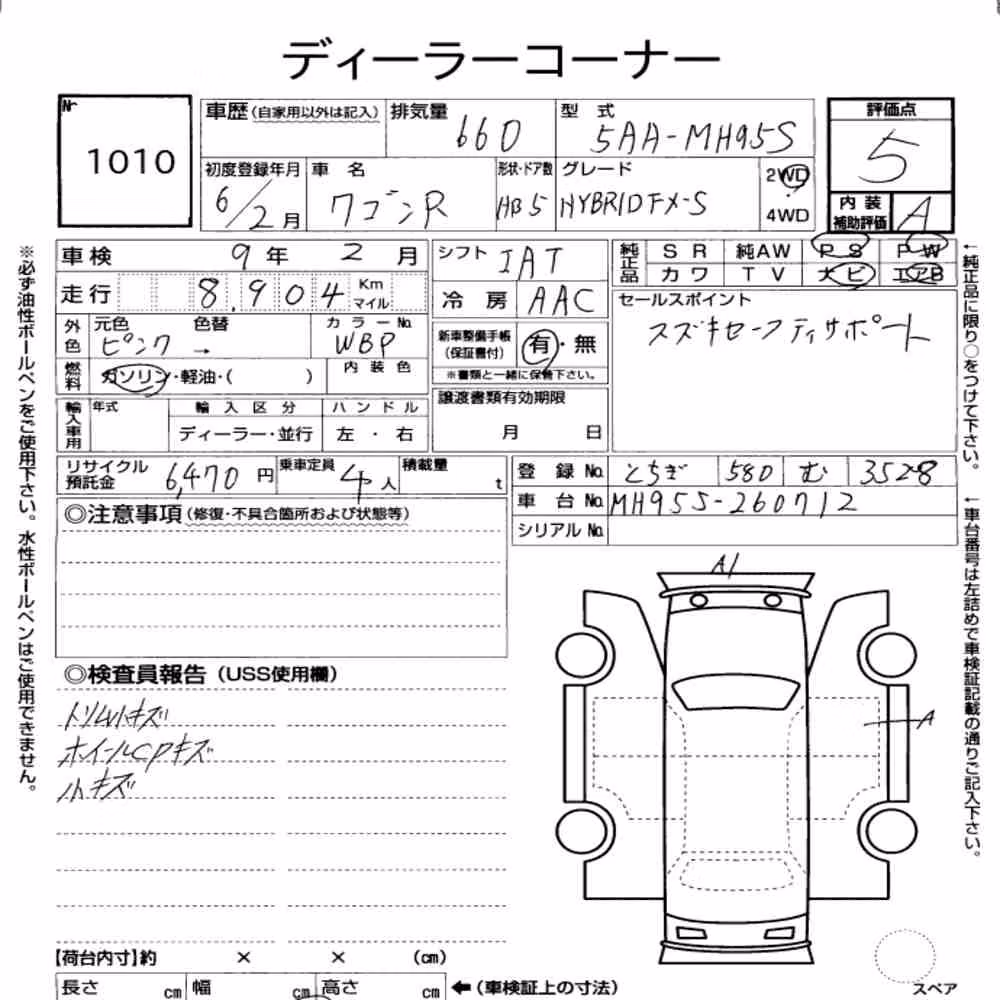 ディーラーコーナー
№
1010
車歴(自家用以外は記入)
排気量
660
型 式
5AA-MH95S
評価点
5
初度登録年月
6/2月
車 名
ワゴンR
形状・ドア数
HB5
グレード
HYBRIDFX-S
2WD
・
4WD
内 装
補助評価
A
車検 9年 2月
走行 8,904 Km
マイル
シフト IAT
冷 房 AAC
純正品
SR 純AW PS PW
カワ TV ナビ エアB
外色
元色
ピンク
色替
→
カラーNo.
WBP
新車整備手帳
(保証書付)
有・無
※書類と一緒に保管下さい。
セールスポイント
スズキセーフティサポート
燃料
ガソリン・軽油・( )
内装色
譲渡書類有効期限
月 日
輸入車用
年式
輸入区分
ディーラー・並行
ハンドル
左・右
リサイクル
預託金
6,470円
乗車定員
4人
積載量
t
登録No. とちぎ 580 む 3528
車台No. MH95S-260712
シリアルNo.
◎注意事項(修復・不具合箇所および状態等)
◎検査員報告(USS使用欄)
トリム小キズ
ホイールCPキズ
小キズ
A1
A
【荷台内寸】約 × × (cm)
長さ cm 幅 cm 高さ cm
←(車検証上の寸法)
スペア
※必ず油性ボールペンをご使用下さい。水性ボールペンはご使用できません。
←純正品に限り○をつけて下さい。
←車台番号は左詰めで車検証記載の通りご記入下さい。